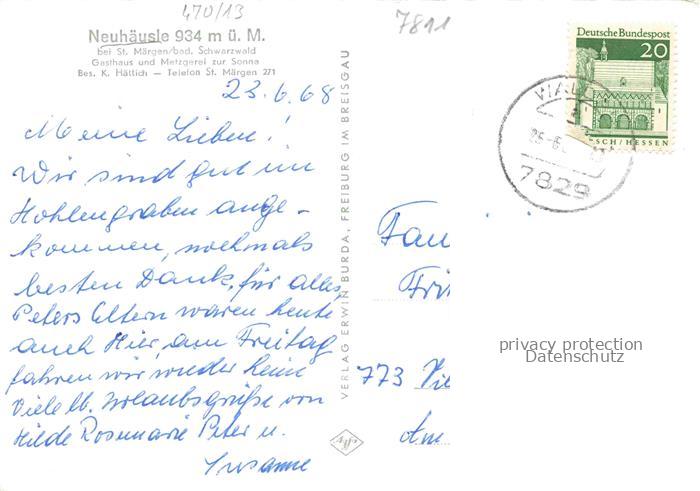 470/13
7811
Neuhäusle 934 m ü. M.
bei St. Märgen/bad. Schwarzwald
Gasthaus und Metzgerei zur Sonne
Bes. K. Hättich — Telefon St. Märgen 271
23.6.68
Meine Lieben!
Wir sind gut im
Hohlengraben ange-
kommen, nochmals
besten Dank für alles,
Peters Eltern waren heute
auch hier, am Freitag
fahren wir wieder heim
Viele lb. Urlaubsgrüße von
Hilde Rosemarie Peter u.
Susanne
VERLAG ERWIN BURDA, FREIBURG IM BREISGAU
Deutsche Bundespost
20
SCH/HESSEN
7829
Fam
773
Am
privacy protection
Datenschutz